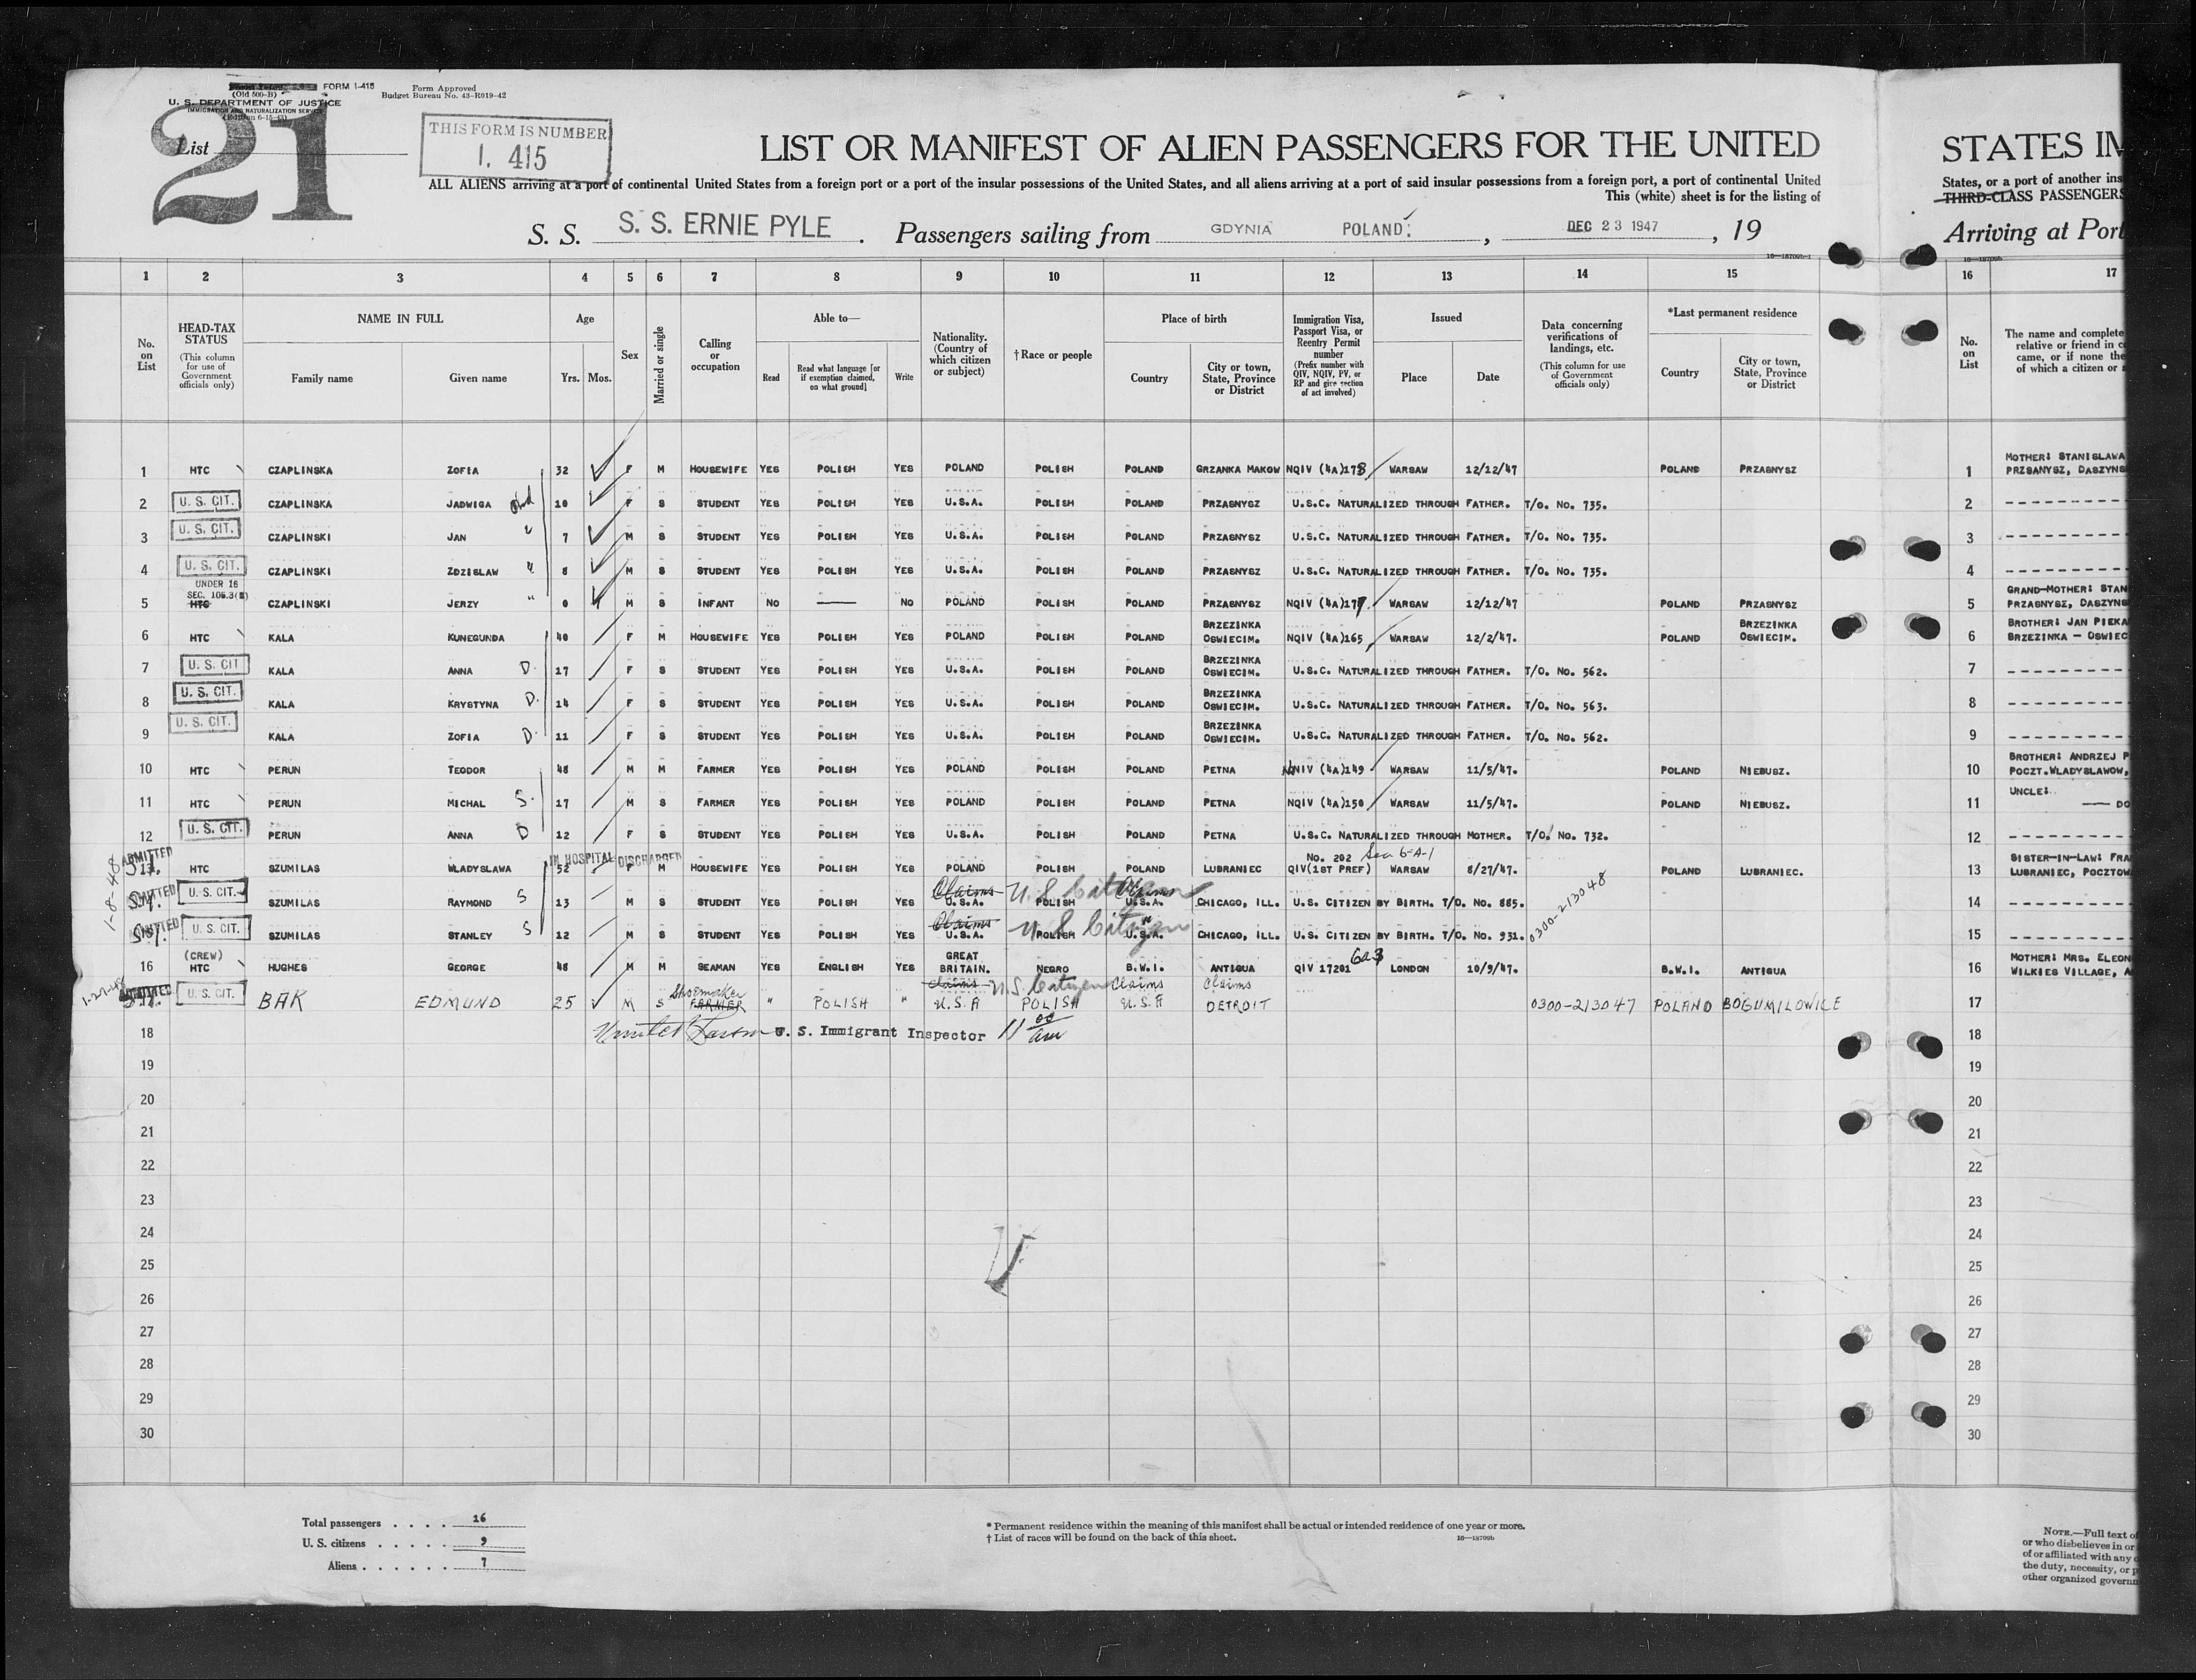 FORM I-415
(Old 500-B)
U. S. DEPARTMENT OF JUSTICE
IMMIGRATION AND NATURALIZATION SERVICE
Form Approved
Budget Bureau No. 43-R019-42
21
List
THIS FORM IS NUMBER
I. 415
LIST OR MANIFEST OF ALIEN PASSENGERS FOR THE UNITED
ALL ALIENS arriving at a port of continental United States from a foreign port or a port of the insular possessions of the United States, and all aliens arriving at a port of said insular possessions from a foreign port, a port of continental United
This (white) sheet is for the listing of
S. S. S. S. ERNIE PYLE . Passengers sailing from GDYNIA POLAND. , DEC 23 1947 , 19
STATES IM
States, or a port of another ins
THIRD-CLASS PASSENGERS
Arriving at Port
1 2 3 4 5 6 7 8 9 10 11 12 13 14 15 16 17
No. on List
HEAD-TAX STATUS
(This column for use of Government officials only)
NAME IN FULL
Family name Given name
Age
Yrs. Mos.
Sex
Married or single
Calling or occupation
Able to—
Read
Read what language [or if exemption claimed, on what ground]
Write
Nationality. (Country of which citizen or subject)
†Race or people
Place of birth
Country
City or town, State, Province or District
Immigration Visa, Passport Visa, or Reentry Permit number
(Prefix number with QIV, NQIV, PV, or RP and give section of act involved)
Issued
Place Date
Data concerning verifications of landings, etc.
(This column for use of Government officials only)
*Last permanent residence
Country
City or town, State, Province or District
No. on List
The name and complete
relative or friend in c
came, or if none the
of which a citizen or
1 HTC CZAPLINSKA ZOFIA 32 F M HOUSEWIFE YES POLISH YES POLAND POLISH POLAND GRZANKA MAKOW NQIV (4A)178 WARSAW 12/12/47 POLAND PRZASNYSZ 1 MOTHER: STANISLAWA PRZSANYSZ, DASZYNS
2 U. S. CIT. CZAPLINSKA JADWIGA 10 F S STUDENT YES POLISH YES U.S.A. POLISH POLAND PRZASNYSZ U.S.C. NATURALIZED THROUGH FATHER. T/O. NO. 735. 2
3 U. S. CIT. CZAPLINSKI JAN " 7 M S STUDENT YES POLISH YES U.S.A. POLISH POLAND PRZASNYSZ U.S.C. NATURALIZED THROUGH FATHER. T/O. NO. 735. 3
4 U. S. CIT. CZAPLINSKI ZDZISLAW " 8 M S STUDENT YES POLISH YES U.S.A. POLISH POLAND PRZASNYSZ U.S.C. NATURALIZED THROUGH FATHER. T/O. NO. 735. 4
UNDER 16
SEC. 105.3(
5 HTC CZAPLINSKI JERZY " 0 M S INFANT NO —— NO POLAND POLISH POLAND PRZASNYSZ NQIV (4A)177. WARSAW 12/12/47 POLAND PRZASNYSZ 5 GRAND-MOTHER: STAN PRZASNYSZ, DASZYNS
6 HTC KALA KUNEGUNDA 40 F M HOUSEWIFE YES POLISH YES POLAND POLISH POLAND BRZEZINKA OSWIECIM. NQIV (4A)165 WARSAW 12/2/47. POLAND BRZEZINKA OSWIECIM. 6 BROTHER: JAN PIEKA BRZEZINKA - OSWIEC
7 U. S. CIT KALA ANNA D. 17 F S STUDENT YES POLISH YES U.S.A. POLISH POLAND BRZEZINKA OSWIECIM. U.S.C. NATURALIZED THROUGH FATHER. T/O. NO. 562. 7
8 U. S. CIT. KALA KRYSTYNA D. 14 F S STUDENT YES POLISH YES U.S.A. POLISH POLAND BRZEZINKA OSWIECIM. U.S.C. NATURALIZED THROUGH FATHER. T/O. NO. 563. 8
9 U. S. CIT. KALA ZOFIA D. 11 F S STUDENT YES POLISH YES U.S.A. POLISH POLAND BRZEZINKA OSWIECIM. U.S.C. NATURALIZED THROUGH FATHER. T/O. NO. 562. 9
10 HTC PERUN TEODOR 48 M M FARMER YES POLISH YES POLAND POLISH POLAND PETNA NIV (4A)149 WARSAW 11/5/47. POLAND NIEBUSZ. 10 BROTHER: ANDRZEJ P POCZT.WLADYSLAWOW,
11 HTC PERUN MICHAL S. 17 M S FARMER YES POLISH YES POLAND POLISH POLAND PETNA NQIV (4A)150 WARSAW 11/5/47. POLAND NIEBUSZ. 11 UNCLE: —— DO
12 U. S. CIT. PERUN ANNA D 12 F S STUDENT YES POLISH YES U.S.A. POLISH POLAND PETNA U.S.C. NATURALIZED THROUGH MOTHER. T/O. NO. 732. 12
ADMITTED IN HOSPITAL DISCHARGED
1-8-48 HTC SZUMILAS WLADYSLAWA 52 F M HOUSEWIFE YES POLISH YES POLAND POLISH POLAND LUBRANIEC NO. 202 QIV(1ST PREF) Sec 6-A-1 WARSAW 8/27/47. POLAND LUBRANIEC. 13 SISTER-IN-LAW: FRA LUBRANIEC, POCZTOW
ADMITTED U. S. CIT. SZUMILAS RAYMOND S 13 M S STUDENT YES POLISH YES Claims U.S.A. U S Citizen POLISH Claims U.S.A. CHICAGO, ILL. U.S. CITIZEN BY BIRTH. T/O. NO. 885. 0300-213048 14
ADMITTED U. S. CIT. SZUMILAS STANLEY S 12 M S STUDENT YES POLISH YES Claims U.S.A. U S Citizen POLISH " U.S.A. CHICAGO, ILL. U.S. CITIZEN BY BIRTH. T/O. NO. 931. 15
16 (CREW) HTC HUGHES GEORGE 48 M M SEAMAN YES ENGLISH YES GREAT BRITAIN. NEGRO B.W.I. ANTIGUA QIV 17201 6a3 LONDON 10/9/47. B.W.I. ANTIGUA 16 MOTHER: MRS. ELEON WILKIES VILLAGE, A
1-27-48 U. S. CIT. BAK EDMUND 25 M S Shoemaker FARMER " POLISH " Claims U.S.A U.S. Citizen POLISH Claims U.S.A Claims DETROIT 0300-213047 POLAND BOGUMILOWICE 17
18 U. S. Immigrant Inspector 11 00 am 18
19 19
20 20
21 21
22 22
23 23
24 24
25 25
26 26
27 27
28 28
29 29
30 30
Total passengers . . . . 16
U. S. citizens . . . . . 9
Aliens . . . . . . 7
* Permanent residence within the meaning of this manifest shall be actual or intended residence of one year or more.
† List of races will be found on the back of this sheet. 16—18709b
NOTE.—Full text of
or who disbelieves in or
of or affiliated with any
the duty, necessity, or p
other organized governm